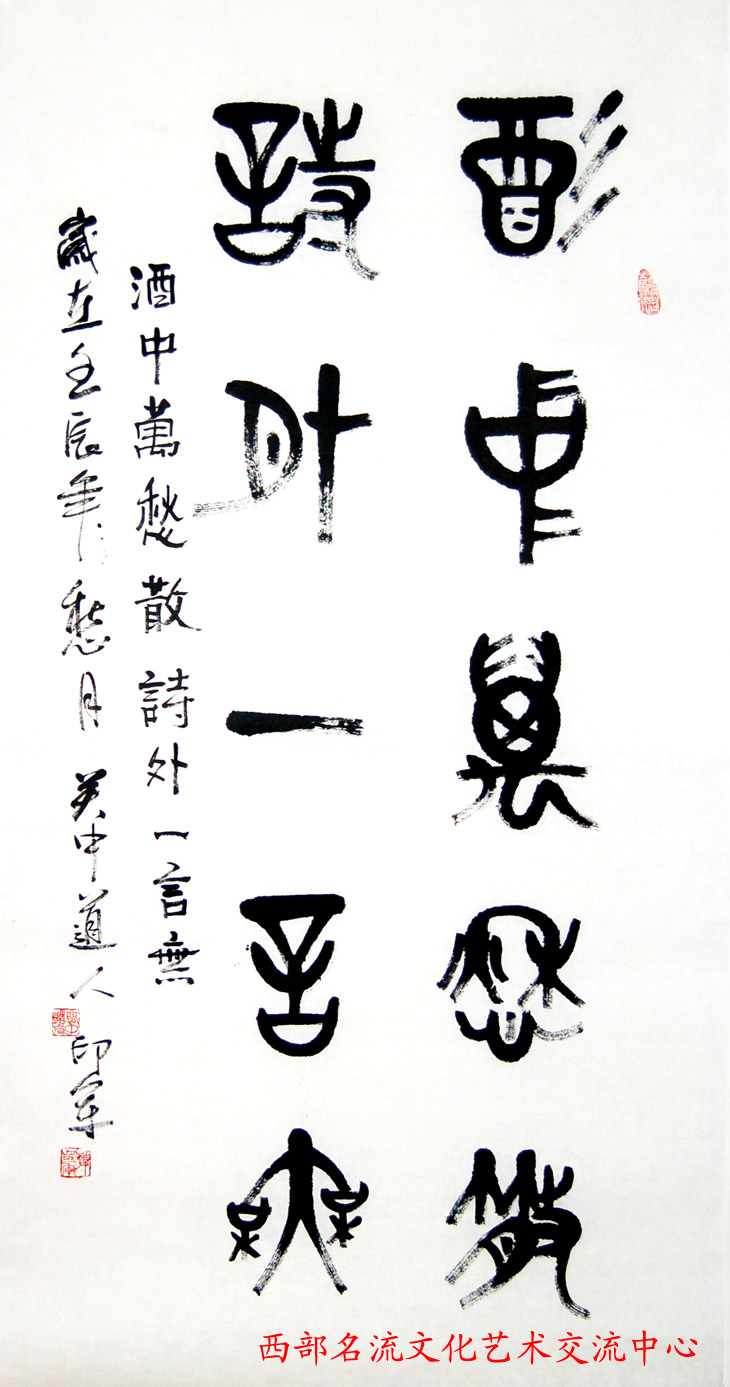 酒中萬愁散
詩外一言無
酒中萬愁散詩外一言無
歲在壬辰年愁月关中道人印军
西部名流文化艺术交流中心